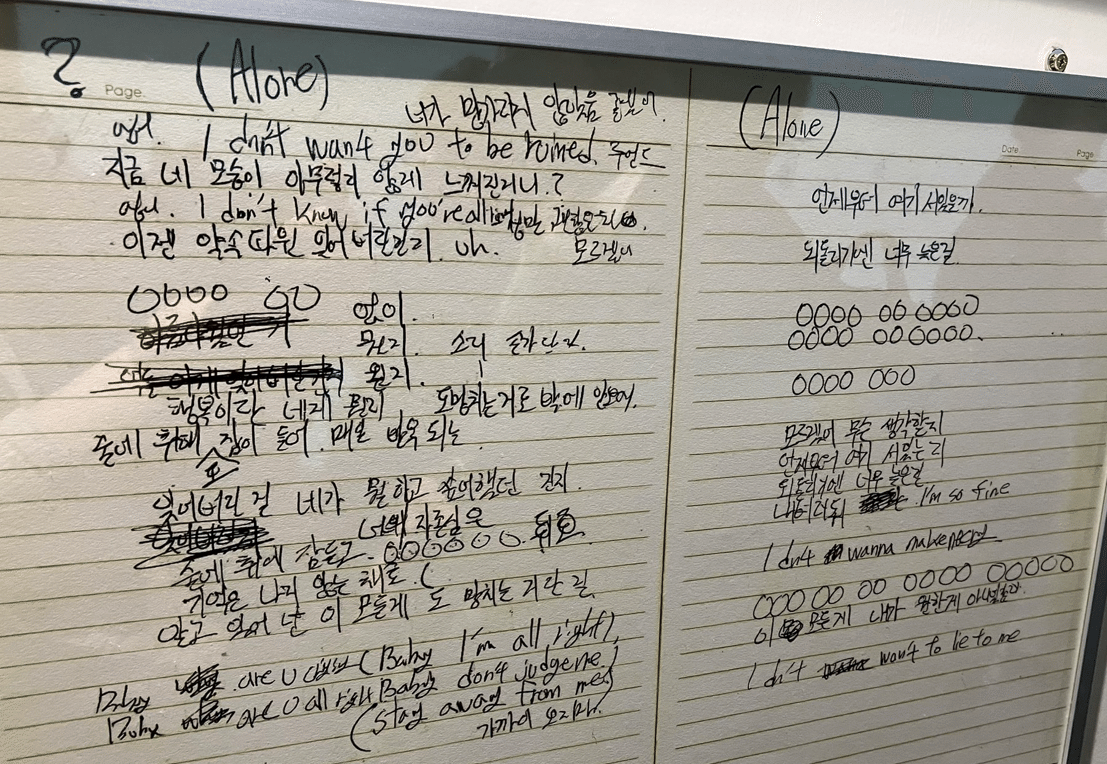 ?
(Alone)
Page.
너가 망가지지 않았음
I don't want you to be ruined.
지금 네 모습이 아무렇지 않게 느껴진거니?
I don't know if you're
이젠 약속따윈 잊어버린건지. uh.
모르겠어
OOOO OO
없이.
뭔지. 소리
뭔지.
행복이란 네게 뭔지 도망치는거로 밖에 안보여.
술에 취해 잠이 들어. 매일 반복 되는
또
잊어버린 걸 네가 뭘 하고 싶어했던 건지
자존심은
술에 취해 잠들고. OOOOOO
기억은 나지 않는 채로. (
알고 있어 넌 이 모든게 도망치는거란 걸
Baby are U (Baby I'm all right)
Baby are U all right Baby don't judge me.)
(Stay away from me.)
가까이 오지마.
(Alone)
Date. Page.
언제부터 여기 서있을까.
되돌리기엔 너무 늦은걸
OOOO OO OOOO
OOOO OO OOOO.
OOOO OOO
모르겠어 무슨 생각할지
언제부터 여기 서있는지
되돌리기엔 너무 늦은걸
I'm so fine
I dn't wanna make
OOO OO OO OOOO OOOOO
이 모든게 내가 원한게 아닐
I dn't want to lie to me